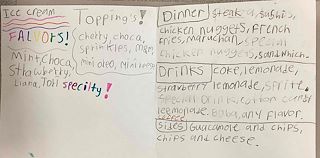 Ice cream
FALVORS!
Mint, choca,
Strawberry,
Liana, Tori specilty!
Topping's!
cherry, choca,
sprinkles, mnms,
mini oreo, mini reeses
Dinner steak, sushis,
chicken nuggets, French
fries, maruchan, special
chicken nuggets, sandwhich.
Drinks coke, lemonade,
strawberry lemonade, Sprite.
Special Drink, cotton candy
leemonade. Boba, any flavor.
Sides Guacamole and chips,
chips and cheese.